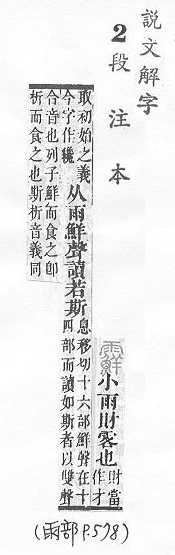 説文解字
2段注本
䨘小雨財零也財當
作才
取初始之義
今字作纔
从雨鮮聲讀若斯
息移切十六部鮮聲在十
四部而讀如斯者以雙聲
合音也列子鮮而食之卽
析而食之也斯析音義同
(雨部P.578)